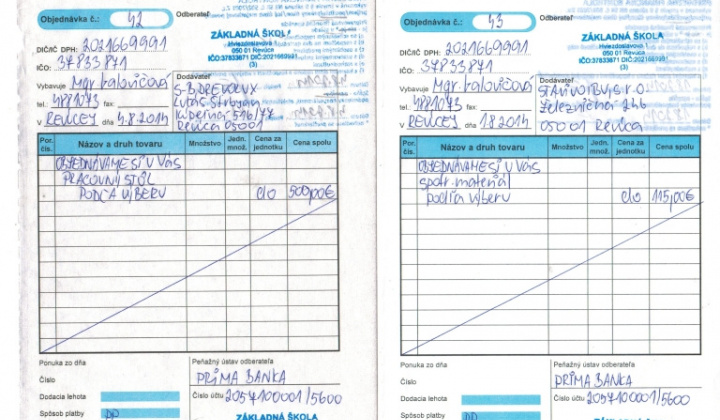 Objednávka č.: 42
Odberateľ
ZÁKLADNÁ ŠKOLA
Hviezdoslavova
050 01 Revúca
IČO:37833871 DIČ:2021669991
(3)
DIČ/IČ DPH: 2021669991
IČO: 37833871
Vybavuje Mgr. Kalovičová
tel. 4881073 fax
V REVÚCEJ dňa 4.8.2014
Dodávateľ
S-B DREVOLUX
050 01
Por. čís.
Názov a druh tovaru
Množstvo
Jedn. množ.
Cena za jednotku
Cena spolu
OBJEDNÁVAME SI U VÁS
PRACOVNÝ STÔL
PODĽA VÝBERU clo 500,00€
Ponuka zo dňa
Číslo
Dodacia lehota
Spôsob platby PP
Peňažný ústav odberateľa
PRIMA BANKA
Číslo účtu 2057100001/5600
ZÁKLADNÁ ŠKOLA
Objednávka č.: 43
Odberateľ
ZÁKLADNÁ ŠKOLA
Hviezdoslavova
050 01 Revúca
IČO:37833871 DIČ:2021669991
(3)
DIČ/IČ DPH: 2021669991
IČO: 37833871
Vybavuje Mgr. Kalovičová
tel. 4881073 fax
V REVÚCEJ dňa 1.8.2014
Dodávateľ
s.r.o.
Železničná 246
050 01 Revúca
Por. čís.
Názov a druh tovaru
Množstvo
Jedn. množ.
Cena za jednotku
Cena spolu
OBJEDNÁVAME SI U VÁS
spotr. materiál
podľa výberu clo 115,00€
Ponuka zo dňa
Číslo
Dodacia lehota
Spôsob platby PP
Peňažný ústav odberateľa
PRIMA BANKA
Číslo účtu 2057100001/5600
ZÁKLADNÁ ŠKOLA